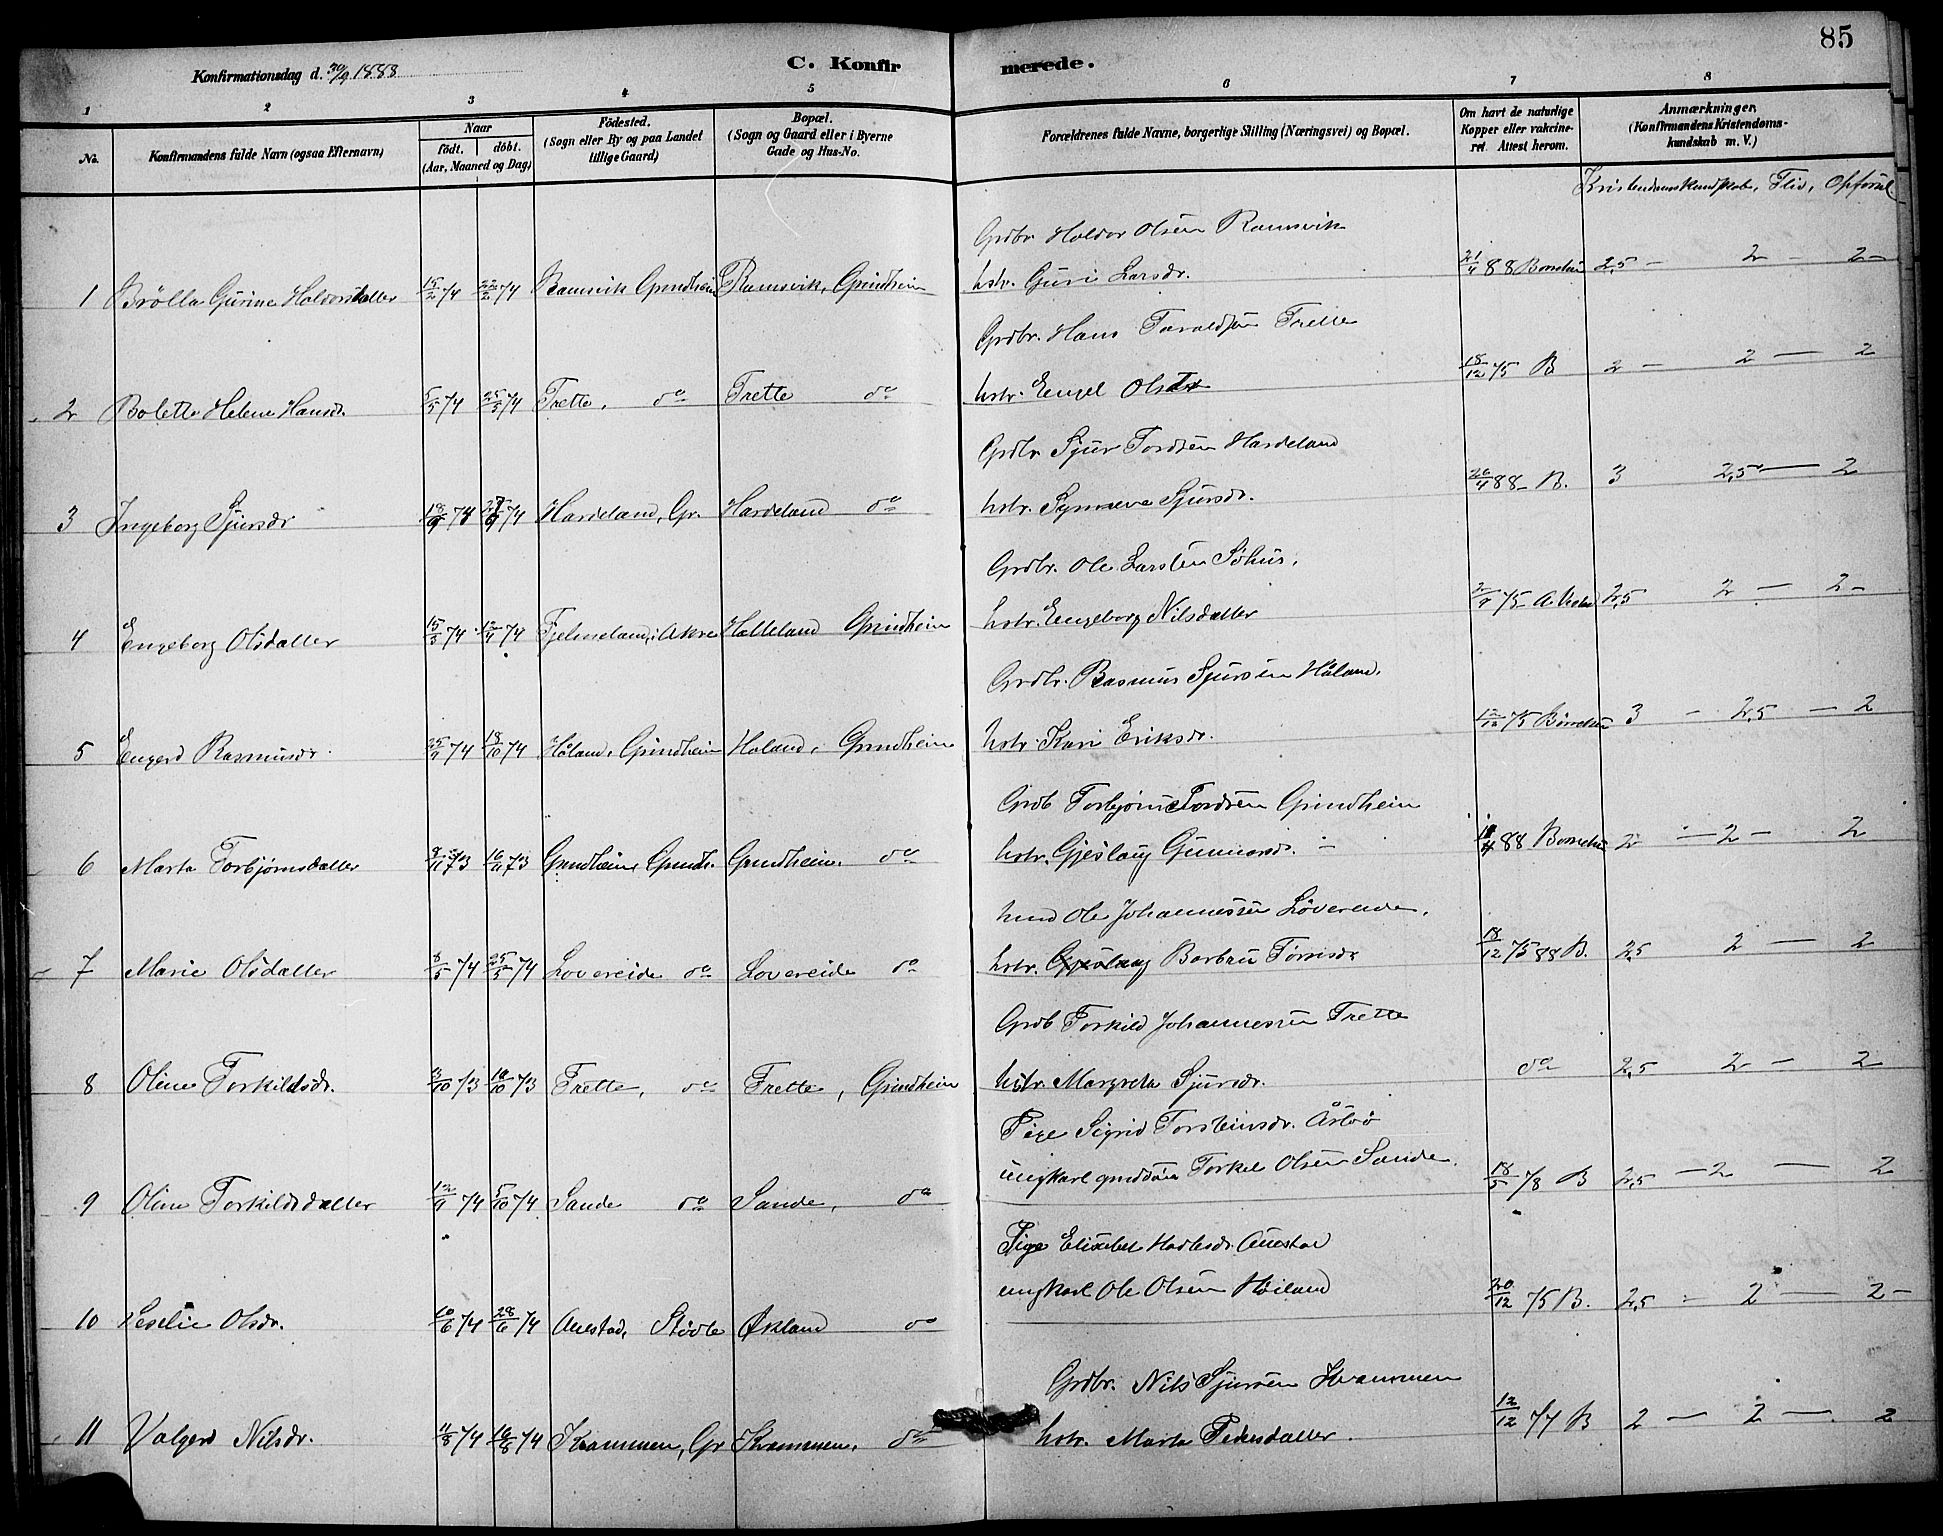 85
Konfirmationsdag d. 30/9 1888
C. Konfirmerede.
1 2 3 4 5 6 7 8
No.
Konfirmandens fulde Navn (ogsaa Efternavn)
Naar
födt. döbt.
(Aar, Maaned og Dag)
Födested.
(Sogn eller By og paa Landet
tillige Gaard)
Bopæl.
(Sogn og Gaard eller i Byerne
Gade og Hus-No.
Forældrenes fulde Navne, borgerlige Stilling (Næringsvei) og Bopæl.
Om havt de naturlige
Kopper eller vakcine-
ret. Attest herom.
Anmærkninger.
(Konfirmandens Kristendoms-
kundskab m. V.)
Kristendomskundskab, Flid, Opførsel
Grdbr. Haldor Olsen Ramsvik
1 Brølla Gurine Haldorsdatter 15/2 74 22/2 74 Ramsvik Grindheim Ramsvik, Grindheim hstr. Guri Larsdr. 21/4 88 2,5 - 2 - 2 -
Grdbr. Hans Taraldsen Trette
2 Bolette Helene Hansdr. 5/5 74 25/5 74 Trette, do Trette do hstr. Engel Olsdr 18/12 75 B 2 - 2 - 2
Grdbr Sjur Tordsen Hardeland
3 Ingeborg Sjursdr 18/9 73 Hardeland, Gr. Hardeland do hstr. Synneve Sjursdr. 26/4 88 - B. 3 2,5 - 2
Grdbr. Ole Larsen Söhus,
4 Engeborg Olsdatter 15/3 74 12/4 74 Fjelneland, i Akre Halleland Grindheim hstr. Engeborg Nilsdatter 75 2,5 2 - 2 -
Grdbr. Rasmus Sjursen Håland.
5 Engerd Rasmusdr. 25/9 74 18/10 74 Håland, Grindheim Haland, Grindheim hstr. Kari Eriksdr. 12/12 75 3 - 2,5 - 2
Grdb Torbjørn Tordsen Grindheim
6 Marta Torbjørnsdatter 8/11 73 16/11 73 Grindheim, Grindh. Grindheim, do hstr. Gjeslaug Gunnarsd. - 88 2 - 2 - 2
hmd Ole Johannessen Lövereide,
7 Marie Olsdatter 8/5 74 25/5 74 Lovereide do Lovereide do hstr. Gjeslaug Barbru Tørrisdr 18/12 75 88 B. 2,5 2 - 2
Grdb Torkild Johannessen Trette
8 Oline Torkildsdr. 3/10 73 19/10 73 Trette, do Trette, Grindheim hstr. Margreta Sjursdr. do 2,5 2 - 2
Pige Sigrid Torsteinsdr. Årbø
9 Oline Torkildsdatter 12/9 74 5/10 74 Sande do Sande, do ungkarl Torkel Olsen Sande. 18/5 78 B 2,5 - 2 - 2
Pige Elisabet Olsdr. Auestad
10 Seselie Olsdr. 10/6 74 28/6 74 Auestad, Stödle Økland do ungkarl Ole Olsen Høiland 20/12 75 B. 2,5 - 2 - 2 -
Grdbr. Nils Sjursen Kvammen
11 Valgerd Nilsdr. 11/8 74 16/8 74 Kvammen, Gr Kvammen, do hstr. Marta Pedersdatter. 12/12 77 B 2 - 2 - 2